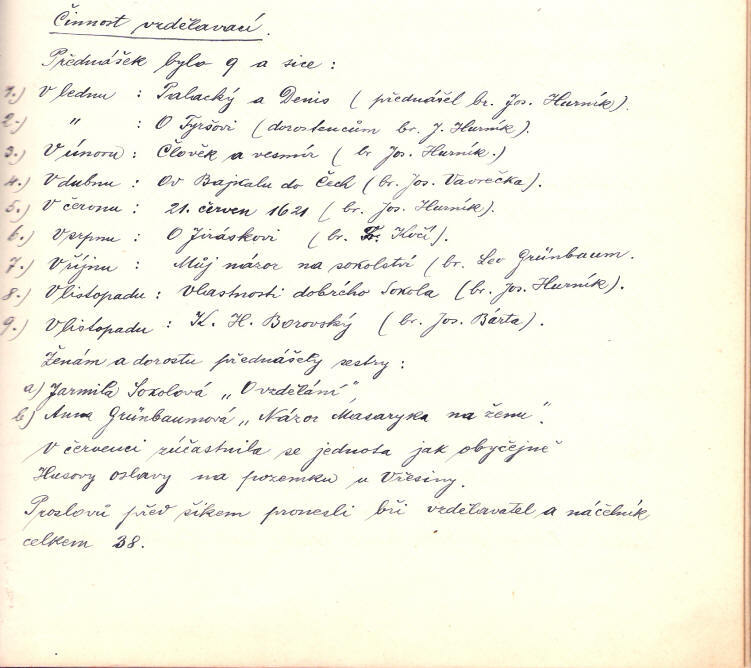 Činnost vzdělavací.
Přednášek bylo 9 a sice :
1.) V lednu : Palacký a Denis ( přednášel br. Jos. Hurník).
2.) " : O Tyršovi (dorostencům br. J. Hurník).
3.) V únoru : Člověk a vesmír ( br Jos. Hurník.)
4.) V dubnu : Od Bajkalu do Čech (br. Jos. Vavrečka).
5.) V červnu : 21. červen 1621 ( br. Jos. Hurník).
6.) V srpnu : O Jiráskovi ( br. Fr. Kočí).
7.) V říjnu : Můj názor na sokolství ( br. Leo Grünbaum.
8.) V listopadu : Vlastnosti dobrého Sokola (br. Jos. Hurník).
9.) V listopadu : K. H. Borovský ( br. Jos. Bárta).
Ženám a dorostu přednášely sestry :
a) Jarmila Sokolová „ O vzdělání"
b) Anna Grünbaumová „ Názor Masaryka na ženu".
V červenci zúčastnila se jednota jak obyčejně
Husovy oslavy na pozemku u Vřesiny.
Proslovů před šikem pronesli bři vzdělavatel a náčelník
celkem 38.